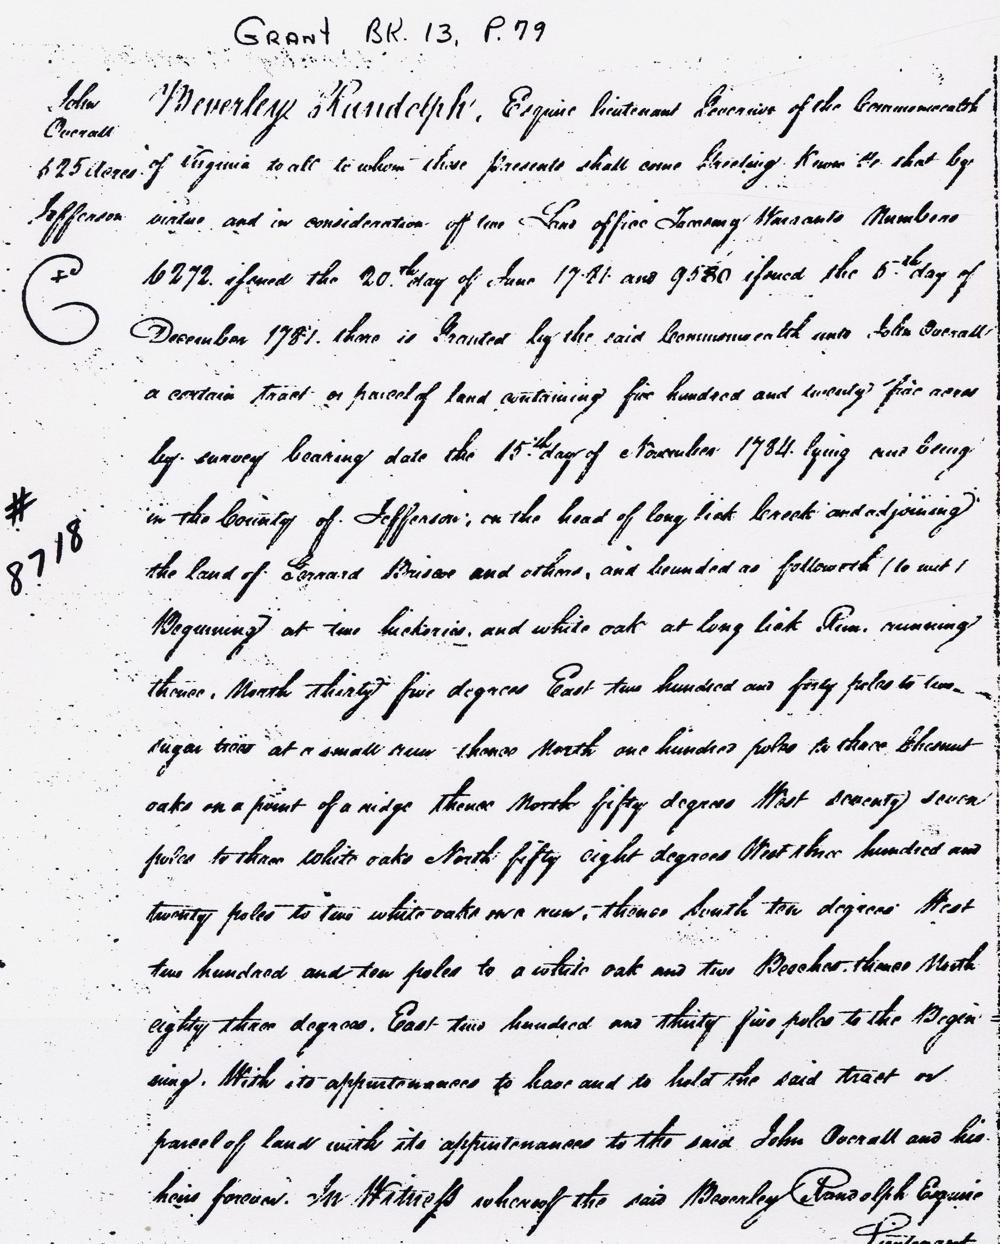 GRANT BK. 13, P. 79
John
Overall
525 Acres
Jefferson
Beverley Randolph, Esquire lieutenant Governor of the Commonwealth
of Virginia to all to whom these Presents shall come Greeting Know Ye that by
virtue and in consideration of two Land office Treasury Warrants Numbers
6272. issued the 20.th day of June 1781 and 9580 issued the 5.th day of
December 1781. there is Granted by the said Commonwealth unto John Overall
a certain tract or parcel of land containing five hundred and twenty five acres
by survey bearing date the 15.th day of November 1784. lying and being
in the County of Jefferson, on the head of long lick Creek and adjoining
# 8718
the land of Gerrard Briscoe and others, and bounded as followeth (to wit)
Beginning at two hickories, and white oak at long lick Run. running
thence, North thirty five degrees East two hundred and forty poles to two
sugar trees at a small run thence North one hundred poles to three Chesnut
oaks on a point of a ridge thence North fifty degrees West seventy seven
poles to three white oaks North fifty eight degrees West three hundred and
twenty poles to two white oaks on a run, thence South ten degrees West
two hundred and ten poles to a white oak and two Beeches. thence North
eighty three degrees. East two hundred and thirty five poles to the Begin
ning. With its appurtenances to have and to hold the said tract or
parcel of land with its appurtenances to the said John Overall and his
heirs forever. In Witness whereof the said Beverley Randolph Esquire
Lieutenant